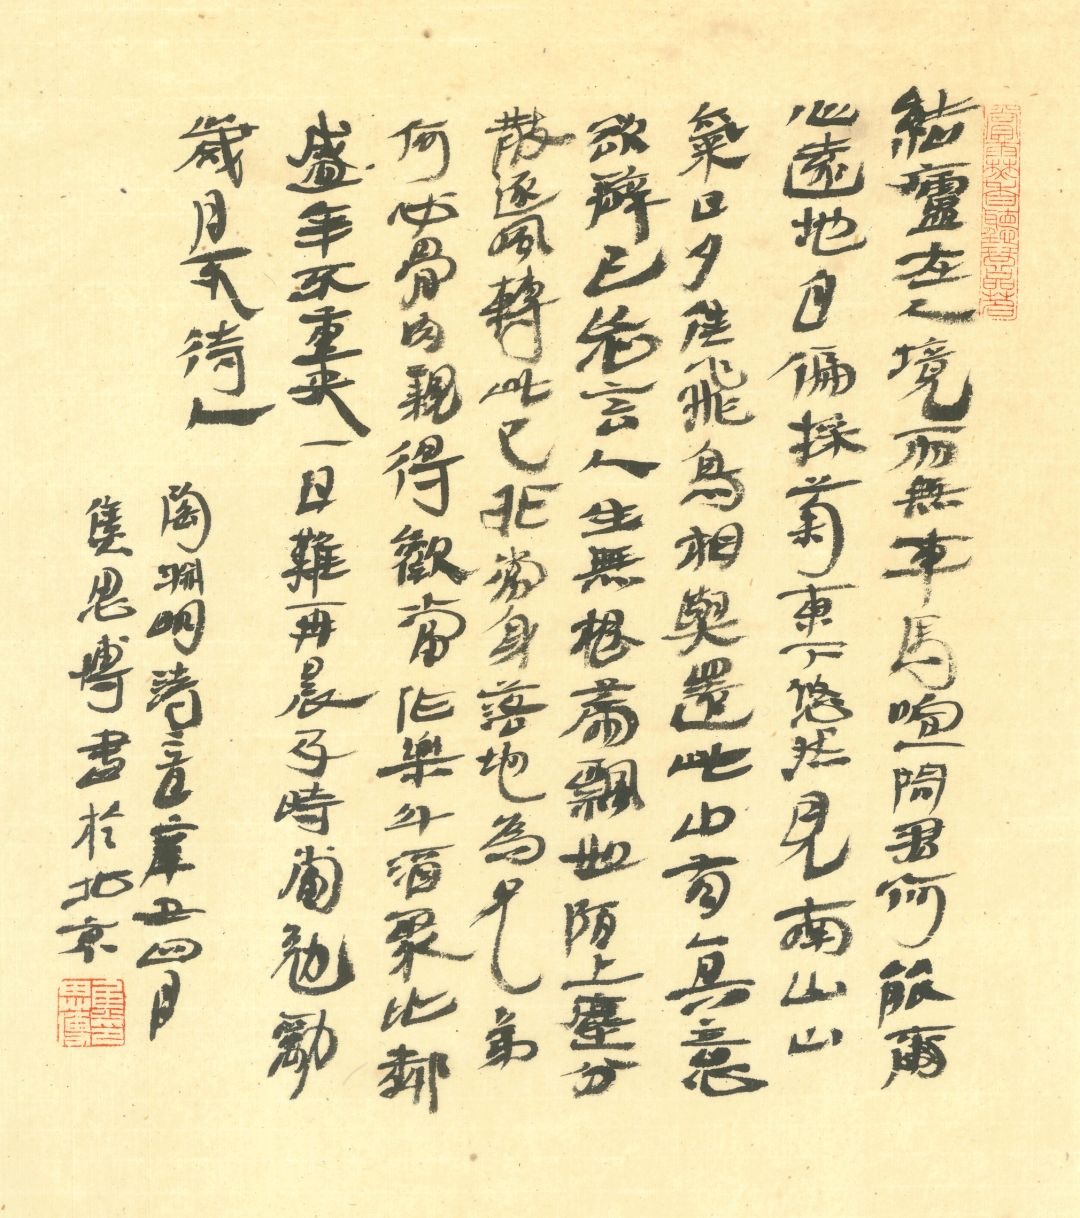 結廬在人境而無車馬喧問君何能爾
心遠地自偏採菊東下悠然見南山山
氣日夕佳飛鳥相與還此中有真意
欲辯已忘言人生無根蒂飄如陌上塵分
散逐風轉此已非常身落地為兄弟
何必骨肉親得歡當作樂斗酒聚比鄰
盛年不重來一日難再晨及時當勉勵
歲月不待人
陶淵明詩二首辛丑四月
隽思博書於北京